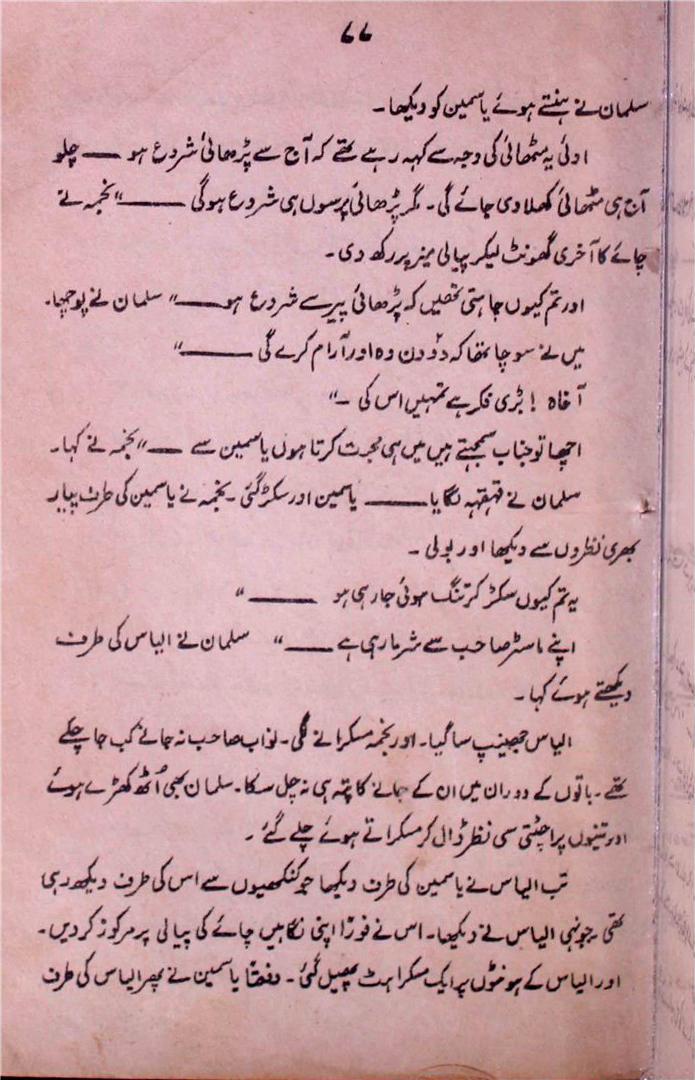 ۷۷
سلمان نے ہنستے ہوئے یاسمین کو دیکھا۔
اوئی یہ مٹھائی کی وجہ سے کہہ رہے تھے کہ آج سے پڑھائی شروع ہو —— چلو
آج ہی مٹھائی کھلا دی جائے گی۔ مگر پڑھائی پرسوں ہی شروع ہوگی ——" نجمہ نے
چائے کا آخری گھونٹ لیکر پیالی میز پر رکھ دی۔
اور تم کیوں چاہتی تھیں کہ پڑھائی پیر سے شروع ہو——" سلمان نے پوچھا۔
میں نے سوچا تھا کہ دو دن وہ اور آرام کرے گی ——"
آخاہ ! بڑی فکر ہے تمہیں اس کی ۔"
اچھا تو جناب سمجھتے ہیں میں ہی محبت کرتا ہوں یاسمین سے ——" نجمہ نے کہا۔
سلمان نے قہقہہ لگایا —— یاسمین اور سکڑ گئی۔ نجمہ نے یاسمین کی طرف پیار
بھری نظروں سے دیکھا اور بولی ۔
یہ تم کیوں سکڑ کر تنگ ہوئی جا رہی ہو ——"
اپنے ماسٹر صاحب سے شرما رہی ہے ——" سلمان نے الیاس کی طرف
دیکھتے ہوئے کہا۔
الیاس جھینپ سا گیا۔ اور نجمہ مسکرانے لگی۔ نواب صاحب نہ جانے کب جا چکے
تھے۔ باتوں کے دوران میں ان کے جانے کا پتہ ہی نہ چل سکا۔ سلمان بھی اُٹھ کھڑے ہوئے
اور تینوں پر اچٹتی سی نظر ڈال کر مسکراتے ہوئے چلے گئے ۔
تب الیاس نے یاسمین کی طرف دیکھا جو کنکھیوں سے اس کی طرف دیکھ رہی
تھی۔ جونہی الیاس نے دیکھا۔ اس نے فوراً اپنی نگاہیں چائے کی پیالی پر مرکوز کر دیں۔
اور الیاس کے ہونٹوں پر ایک مسکراہٹ پھیل گئی۔ دفعتاً یاسمین نے پھر الیاس کی طرف